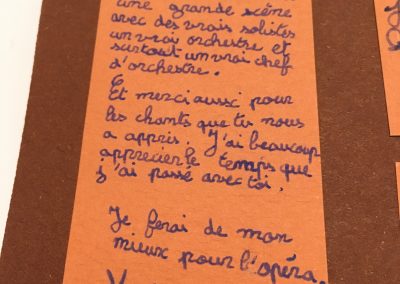 une grande scène
avec des vrais solistes
un vrai orchestre et
surtout un vrai chef
d'orchestre.
Et merci aussi pour
les chants que tu nous
a appris. J'ai beaucoup
apprecier le temps que
j'ai passé avec toi.
Je ferai de mon
mieux pour l'opéra.